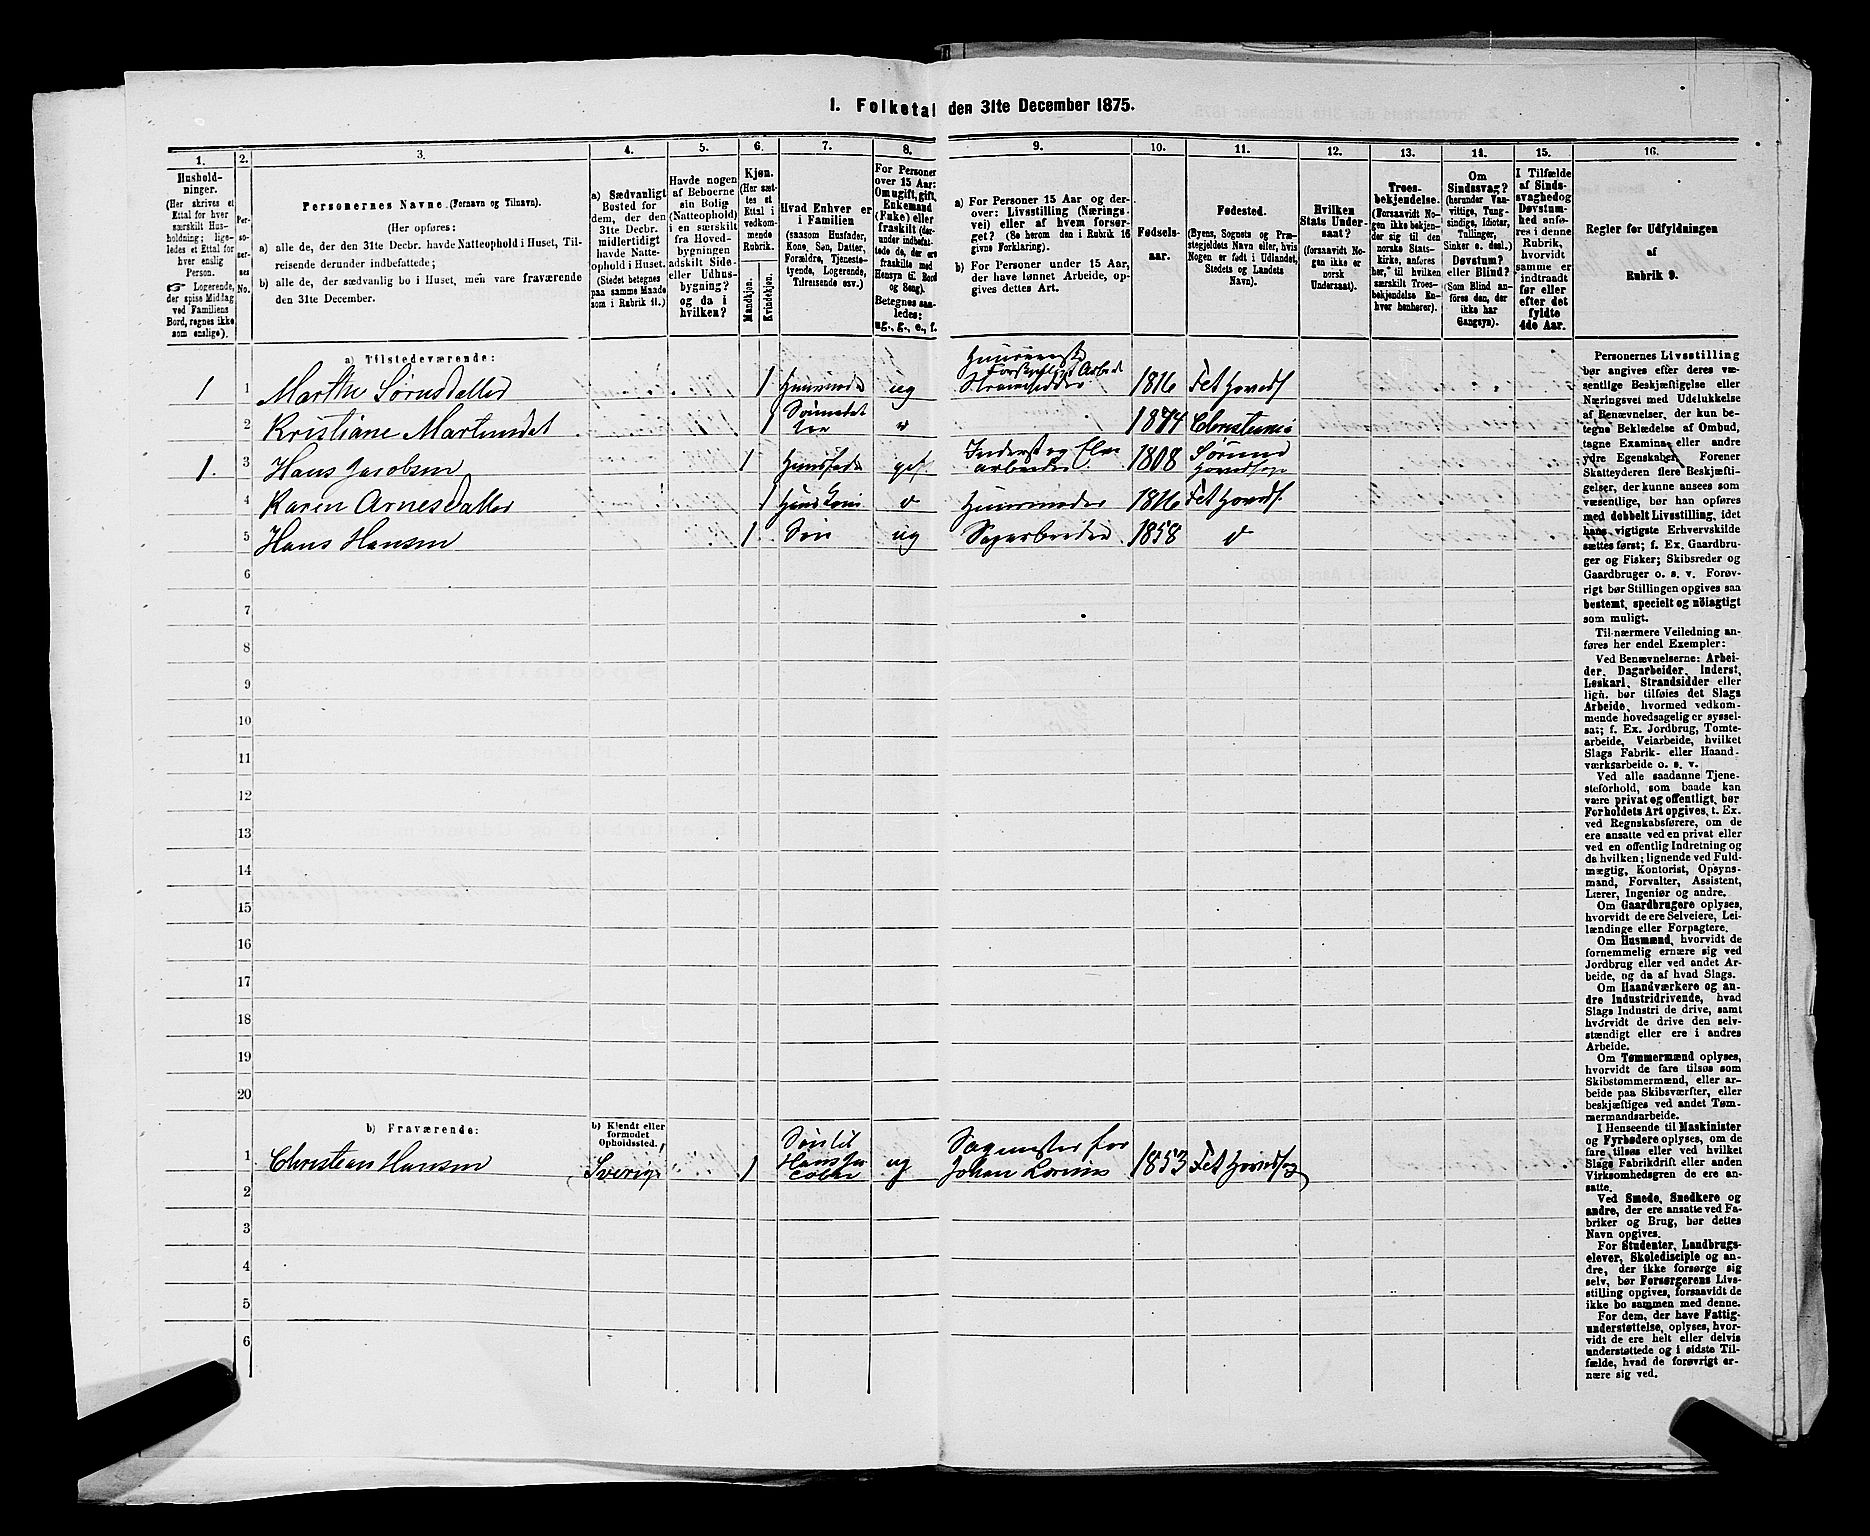 1. Folketal den 31te December 1875.
1.
Hushold-
ninger.
(Her skrives et
Ettal for hver
særskilt Hus-
holdning; lige-
ledes et Ettal for
hver enslig
Person.
☞ Logerende,
der spise Middag
ved Familiens
Bord, regnes ikke
som enslige).
2.
Per-
so-
ner-
nes
No.
3.
Personernes Navne. (Fornavn og Tilnavn).
(Her opføres:
a) alle de, der den 31te Decbr. havde Natteophold i Huset, Til-
reisende derunder indbefattede;
b) alle de, der sædvanlig bo i Huset, men vare fraværende
den 31te December.
4.
a) Sædvanligt
Bosted for
dem, der den
31te Decbr.
midlertidigt
havde Natte-
ophold i Huset.
(Stedet betegnes
paa samme Maade
som i Rubrik 11.)
5.
Havde nogen
af Beboerne
sin Bolig
(Natteophold)
i en særskilt
fra Hoved-
bygningen
adskilt Side-
eller Udhus-
bygning?
og da i
hvilken?
6.
Kjøn.
(Her sæt-
tes et
Ettal i
vedkom-
mende
Rubrik.
Mandkjøn.
Kvindekjøn.
7.
Hvad Enhver er
i Familien
(saasom Husfader,
Kone, Søn, Datter,
Forældre, Tjeneste-
tyende, Logerende,
Tilreisende osv.)
8.
For Personer
over 15 Aar:
Om ugift, gift,
Enkemand
(Enke) eller
fraskilt (der-
under indbefat-
tede de, der ere
fraskilte med
Hensyn til Bord
og Seng).
Betegnes saa-
ledes:
ug., g., e., f.
9.
a) For Personer 15 Aar og der-
over: Livsstilling (Nærings-
vei) eller af hvem forsør-
get? (Se herom den i Rubrik 16
givne Forklaring).
b) For Personer under 15 Aar,
der have lønnet Arbeide, op-
gives dettes Art.
10.
Fødsels-
aar.
11.
Fødested.
(Byens, Sognets og Præ-
stegjeldets Navn eller, hvis
Nogen er født i Udlandet,
Stedets og Landets
Navn).
12.
Hvilken
Stats Under-
saat?
(forsaavidt No-
gen ikke er
norsk
Undersaat).
13.
Troes-
bekjendelse.
(Forsaavidt No-
gen ikke bekjen-
der sig til den
norske Stats-
kirke, anføres
her, til hvilken
særskilt Troes-
bekjendelse En-
hver henhører).
14.
Om
Sindssvag?
(herunder Van-
vittige, Tung-
sindige, Idioter,
Tullinger,
Sinker o. desl.)
Døvstum?
eller Blind?
(Som Blind an-
føres den, der
ikke har
Gangsyn).
15.
I Tilfælde
af Sinds-
svaghed og
Døvstum-
hed anfø-
res i denne
Rubrik,
hvorvidt
samme er
indtraadt
før eller
efter det
fyldte
4de Aar.
16.
Regler for Udfyldningen
af
Rubrik 9.
a) Tilstedeværende:
1 1 Marthe Sørnsdatter 1 ug Strandsidder 1816 Fet Hovedf
2 Kristiane 1 1874 Christiania
1. 3 Hans Jacobsen 1 Husfader gift Inderst og 1808 Sørum Hovedsogn
4 Karen Arnesdatter 1 Huus Kone d 1816 Fet Hovedf.
5 Hans Hansen 1 Søn ug Sagarbeider 1858 d
6
7
8
9
10
11
12
13
14
15
16
17
18
19
20
b) Fraværende:
b) Kjendt eller
formodet
Opholdssted.
1 Christian Hansen Sverige 1 Søn til Hans Jacobsen ug Sagmester for Johan 1853 Fet Hovedsog
2
3
4
5
6
Personernes Livsstilling
bør angives efter deres væ-
sentlige Beskjæftigelse eller
Næringsvei med Udelukkelse
af Benævnelser, der kun be-
tegne Beklædelse af Ombud,
tagne Examina eller andre
ydre Egenskaber. Forener
Skatteyderen flere Beskjæfti-
gelser, der kunne ansees som
væsentlige, bør han opføres
med dobbelt Livsstilling, idet
hans vigtigste Erhvervskilde
sættes først; f. Ex. Gaardbru-
ger og Fisker; Skibsreder og
Gaardbruger o. s. v. Forøv-
rigt bør Stillingen opgives saa
bestemt, specielt og nöiagtigt
som muligt.
Til nærmere Veiledning an-
føres her endel Exempler:
Ved Benævnelserne: Arbei-
der, Dagarbeider, Inderst,
Løskarl, Strandsidder eller
lign. bør tilføies det Slags
Arbeide, hvormed vedkom-
mende hovedsagelig er syssel-
sat; f. Ex. Jordbrug, Tomte-
arbeide, Veiarbeide, hvilket
Slags Fabrik- eller Haand-
værksarbeide o. s. v.
Ved alle saadanne Tjene-
steforhold, som baade kan
være privat og offentligt, bør
Forholdets Art opgives, t. Ex.
ved Regnskabsførere, om de
ere ansatte ved en privat eller
ved en offentlig Indretning og
da hvilken; lignende ved Fuld-
mægtig, Kontorist, Opsyns-
mand, Forvalter, Assistent,
Lærer, Ingeniør og andre.
Om Gaardbrugere oplyses,
hvorvidt de ere Selveiere, Lei-
lændinge eller Forpagtere.
Om Husmænd, hvorvidt de
fornemmelig ernære sig ved
Jordbrug eller ved andet Ar-
beide, og da af hvad Slags.
Om Haandværkere og an-
dre Industridrivende, hvad
Slags Industri de drive, samt
hvorvidt de drive den selv-
stændigt eller ere i andres
Arbeide.
Om Tømmermænd oplyses,
hvorvidt de fare tilsøs som
Skibstømmermænd, eller ar-
beide paa Skibsværfter, eller
beskjæftiges ved andet Tøm-
mermandsarbeide.
I Henseende til Maskinister
og Fyrbødere oplyses, om de
fare tilsøs eller ved hvilket
Slags Fabrikdrift eller anden
Virksomhedsgren de ere an-
satte.
Ved Smede, Snedkere og
andre, der ere ansatte ved Fa-
briker og Brug, bør dettes
Navn opgives.
For Studenter, Landbrugs-
elever, Skoledisciple og an-
dre, der ikke forsørge sig
selv, bør Forsørgerens Livs-
stilling opgives, forsaavidt de
ikke bo sammen med denne.
For dem, der have Fattig-
understøttelse, oplyses, hvor-
vidt de ere helt eller delvis
understøttede og i sidste Til-
fælde, hvad de forøvrigt er-
nære sig ved.